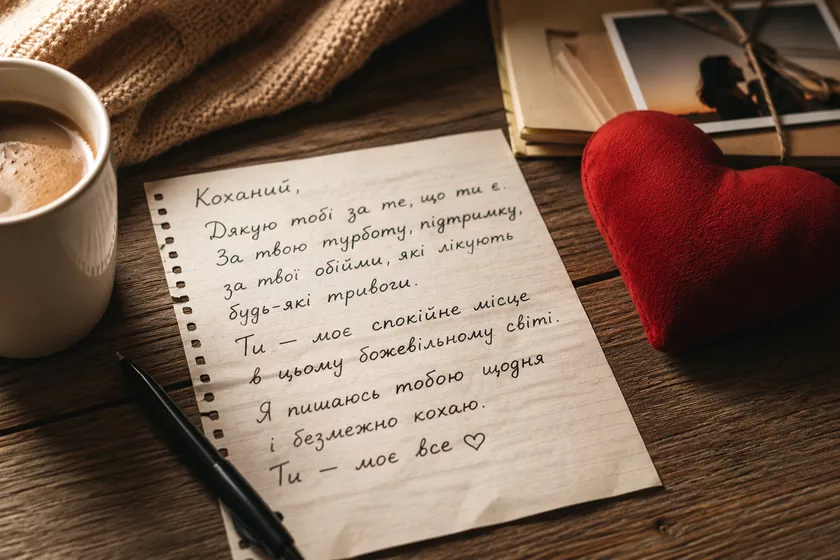 Коханий,
Дякую тобі за те, що ти є.
За твою турботу, підтримку,
за твої обійми, які лікують
будь-які тривоги.
Ти — моє спокійне місце
в цьому божевільному світі.
Я пишаюсь тобою щодня
і безмежно кохаю.
Ти — моє все ♡